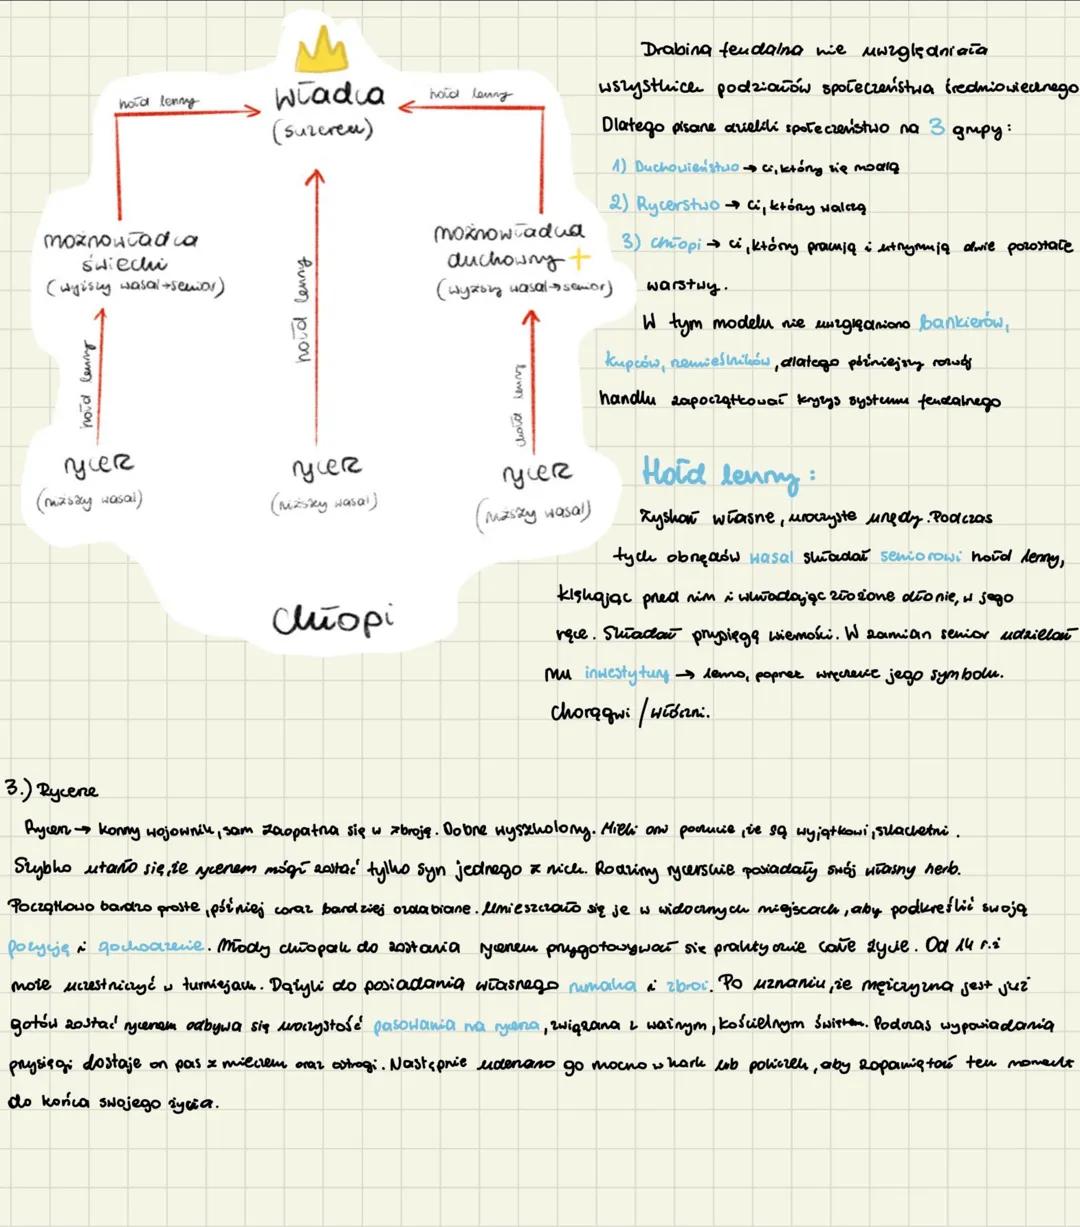 władca
(suzeren)
hołd lenny
hołd lenny
możnowładca
świecki
(wyższy wasal→senior)
możnowładca
duchowny +
(wyższy wasal→senior)
hołd lenny
hołd lenny
hołd lenny
rycerz
(niższy wasal)
rycerz
(niższy wasal)
rycerz
(niższy wasal)
Chłopi
Drabina feudalna nie uwzględniała
wszystkich podziałów społeczeństwa średniowiecznego
Dlatego pisane dzielili społeczeństwo na 3 grupy:
1) Duchowieństwo → ci, którzy się modlą
2) Rycerstwo → ci, którzy walczą
3) chłopi → ci, którzy pracują i utrzymują dwie pozostałe
warstwy.
W tym modelu nie uwzględniono bankierów,
kupców, rzemieślników, dlatego późniejszy rozwój
handlu zapoczątkował kryzys systemu feudalnego
Hołd lenny:
Zyskał własne, uroczyste urzędy. Podczas
tych obrzędów wasal składał seniorowi hołd lenny,
klękając przed nim i wkładając złożone dłonie, w jego
ręce. Składał przysięgą wierności. W zamian senior udzielał
mu inwestyturę → lenno, poprzez wręczenie jego symbolu.
Chorągwi / włóczni.
3.) Rycerze
Rycerz → konny wojownik, sam zaopatrza się w zbroję. Dobrze wyszkolony. Mieli oni poczucie, że są wyjątkowi, szlachetni.
Szybko utarło się, że rycerzem mógł zostać tylko syn jednego z nich. Rodziny rycerskie posiadały swój własny herb.
Początkowo bardzo proste, później coraz bardziej ozdabiane. Umieszczało się je w widocznych miejscach, aby podkreślić swoją
pozycję i pochodzenie. Młody chłopak do zostania rycerzem przygotowywał się praktycznie całe życie. Od 14 r.ż
może uczestniczyć w turniejach. Dążyli do posiadania własnego rumaka i zbroi. Po uznaniu, że mężczyzna jest już
gotów zostać rycerzem odbywa się uroczystość pasowania na rycerza, związana z ważnym, kościelnym świętem. Podczas wypowiadania
przysięgi dostaje on pas z mieczem oraz ostrogi. Następnie uderzano go mocno w kark lub policzek, aby zapamiętał ten moment
do końca swojego życia.